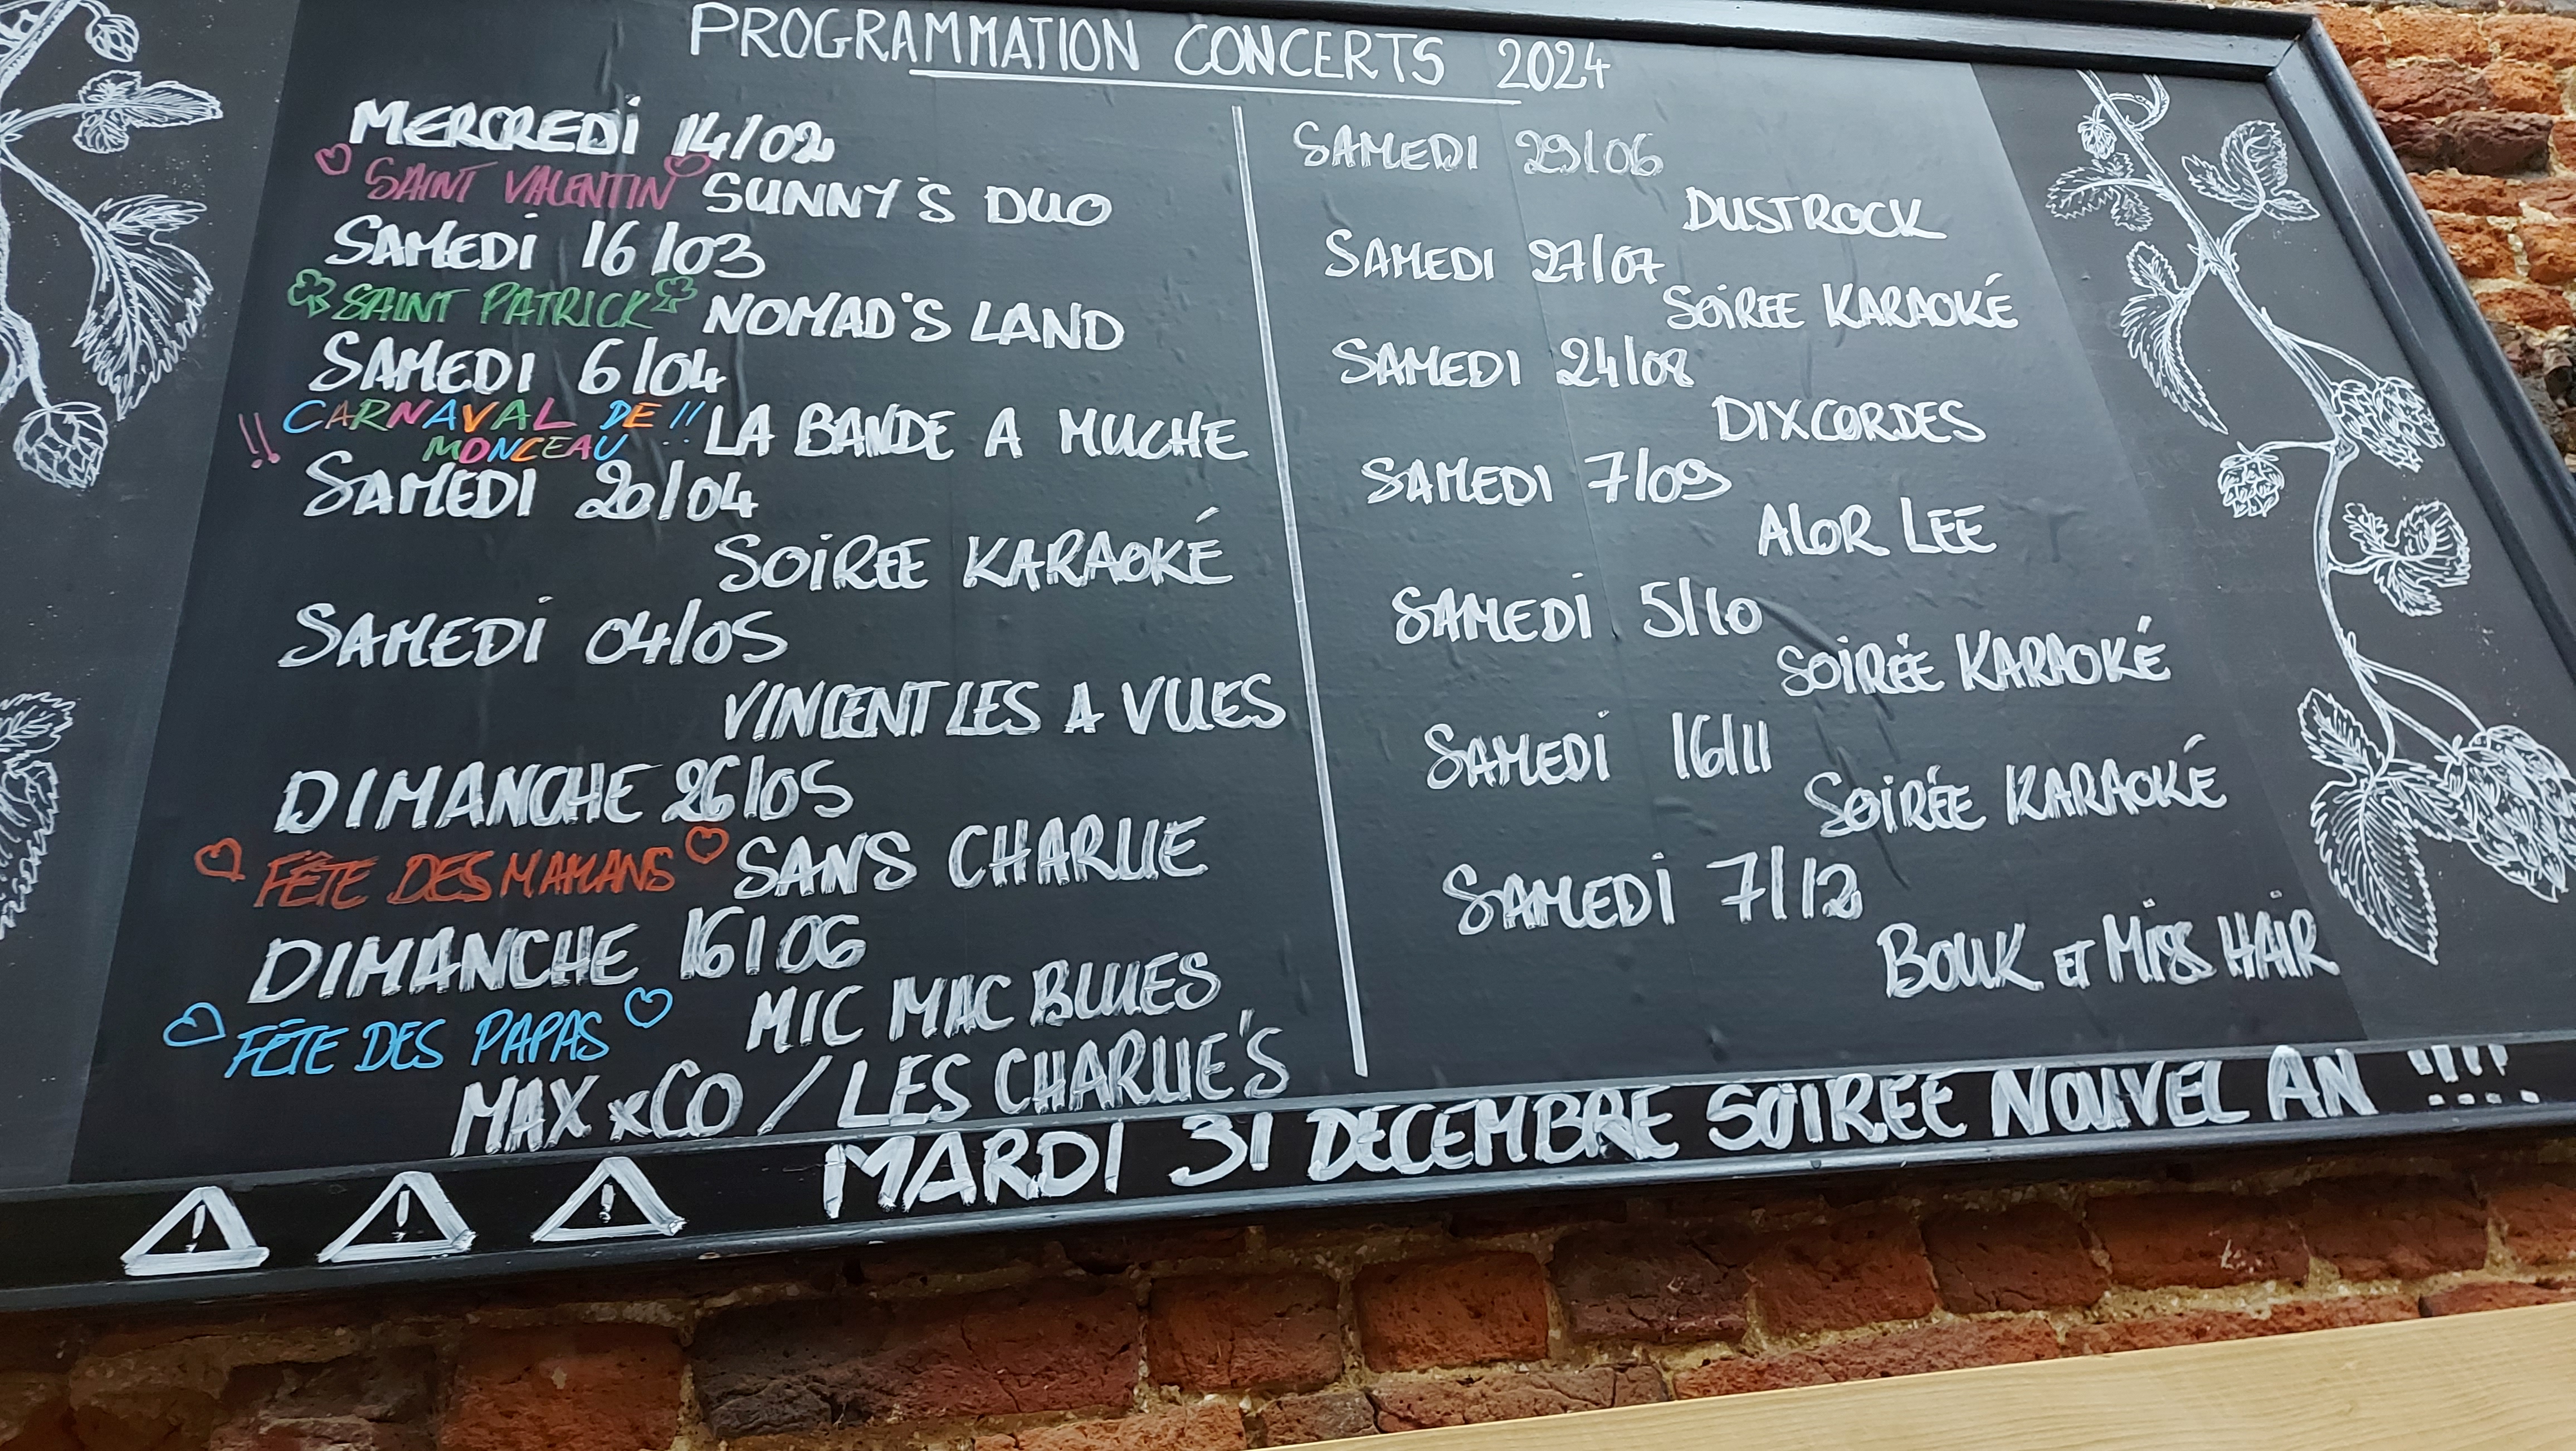 PROGRAMMATION CONCERTS 2024
MERCREDI 14/02
SAINT VALENTIN SUNNY'S DUO
SAMEDI 16/03
SAINT PATRICK NOMAD'S LAND
SAMEDI 6/04
!! CARNAVAL DE !! LA BANDE A MUCHE
MONCEAU
SAMEDI 20/04
SOIREE KARAOKÉ
SAMEDI 04/05
VINCENT LES A VUES
DIMANCHE 26/05
FÊTE DES MAMANS SANS CHARLIE
DIMANCHE 16/06
FÊTE DES PAPAS MIC MAC BLUES
MAX & CO / LES CHARLIE'S
SAMEDI 29/06
DUSTROCK
SAMEDI 27/07
SOIREE KARAOKÉ
SAMEDI 24/08
DIXCORDES
SAMEDI 7/09
ALOR LEE
SAMEDI 5/10
SOIRÉE KARAOKÉ
SAMEDI 16/11
SOIRÉE KARAOKÉ
SAMEDI 7/12
BOUK ET MISS HAIR
! ! ! MARDI 31 DECEMBRE SOIRÉE NOUVEL AN !!!!